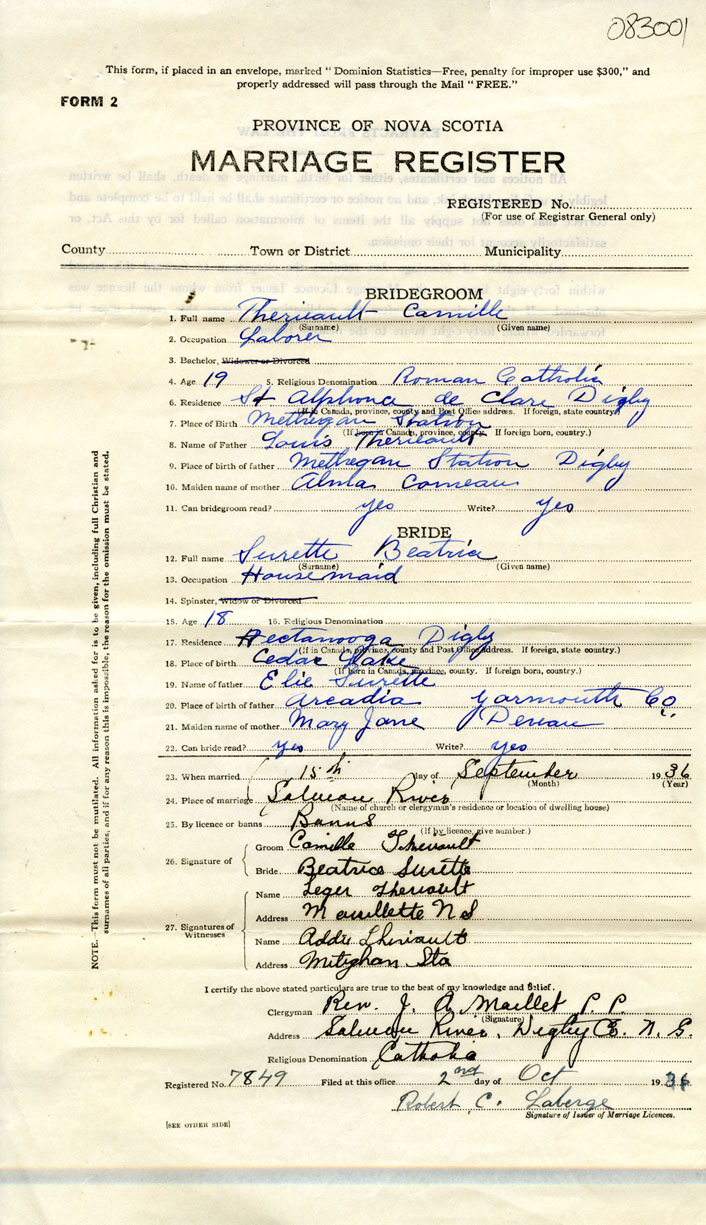 083001
This form, if placed in an envelope, marked "Dominion Statistics—Free, penalty for improper use $300," and
properly addressed will pass through the Mail "FREE."
FORM 2
PROVINCE OF NOVA SCOTIA
MARRIAGE REGISTER
REGISTERED No.
(For use of Registrar General only)
County Town or District Municipality
BRIDEGROOM
1. Full name Therieault Camille
(Surname) (Given name)
2. Occupation Laborer
3. Bachelor, Widower or Divorced
4. Age 19 5. Religious Denomination Roman Catholic
6. Residence St Alphonse de Clare Digby
(If in Canada, province, county and Post Office address. If foreign, state country)
7. Place of Birth Methegan Station
(If born in Canada, province, county. If foreign born, country.)
8. Name of Father Louis Therieault
9. Place of birth of father Methegan Station Digby
10. Maiden name of mother Alma Comeau
11. Can bridegroom read? yes Write? yes
BRIDE
12. Full name Surette Beatrice
(Surname) (Given name)
13. Occupation Housemaid
14. Spinster, Widow or Divorced
15. Age 18 16. Religious Denomination
17. Residence Hectanooga Digby
(If in Canada, province, county and Post Office address. If foreign, state country.)
18. Place of birth Cedar Lake
(If born in Canada, province, county. If foreign born, country.)
19. Name of father Elie Surette
20. Place of birth of father Arcadia Yarmouth Co.
21. Maiden name of mother Mary Jane Deveau
22. Can bride read? yes Write? yes
23. When married 15th day of September 1936
(Month) (Year)
24. Place of marriage Salmon River
(Name of church or clergyman's residence or location of dwelling house)
25. By licence or banns Banns
(If by licence, give number.)
Groom Camille Theriault
26. Signature of
Bride Beatrice Surette
Name Leger Theriault
Address Mavillette N S
27. Signatures of Witnesses
Name Addie Theriault
Address Meteghan Sta
I certify the above stated particulars are true to the best of my knowledge and belief.
Clergyman Rev. J. A. Maillet P. P.
(Signature)
Address Salmon River, Digby Co. N. S.
Religious Denomination Catholic
Registered No. 7849 Filed at this office 2nd day of Oct 1936
Robert C. Laberge
Signature of Issuer of Marriage Licences.
[SEE OTHER SIDE]
NOTE. This form must not be mutilated. All information asked for is to be given, including full Christian and
surnames of all parties, and if for any reason this is impossible, the reason for the omission must be stated.